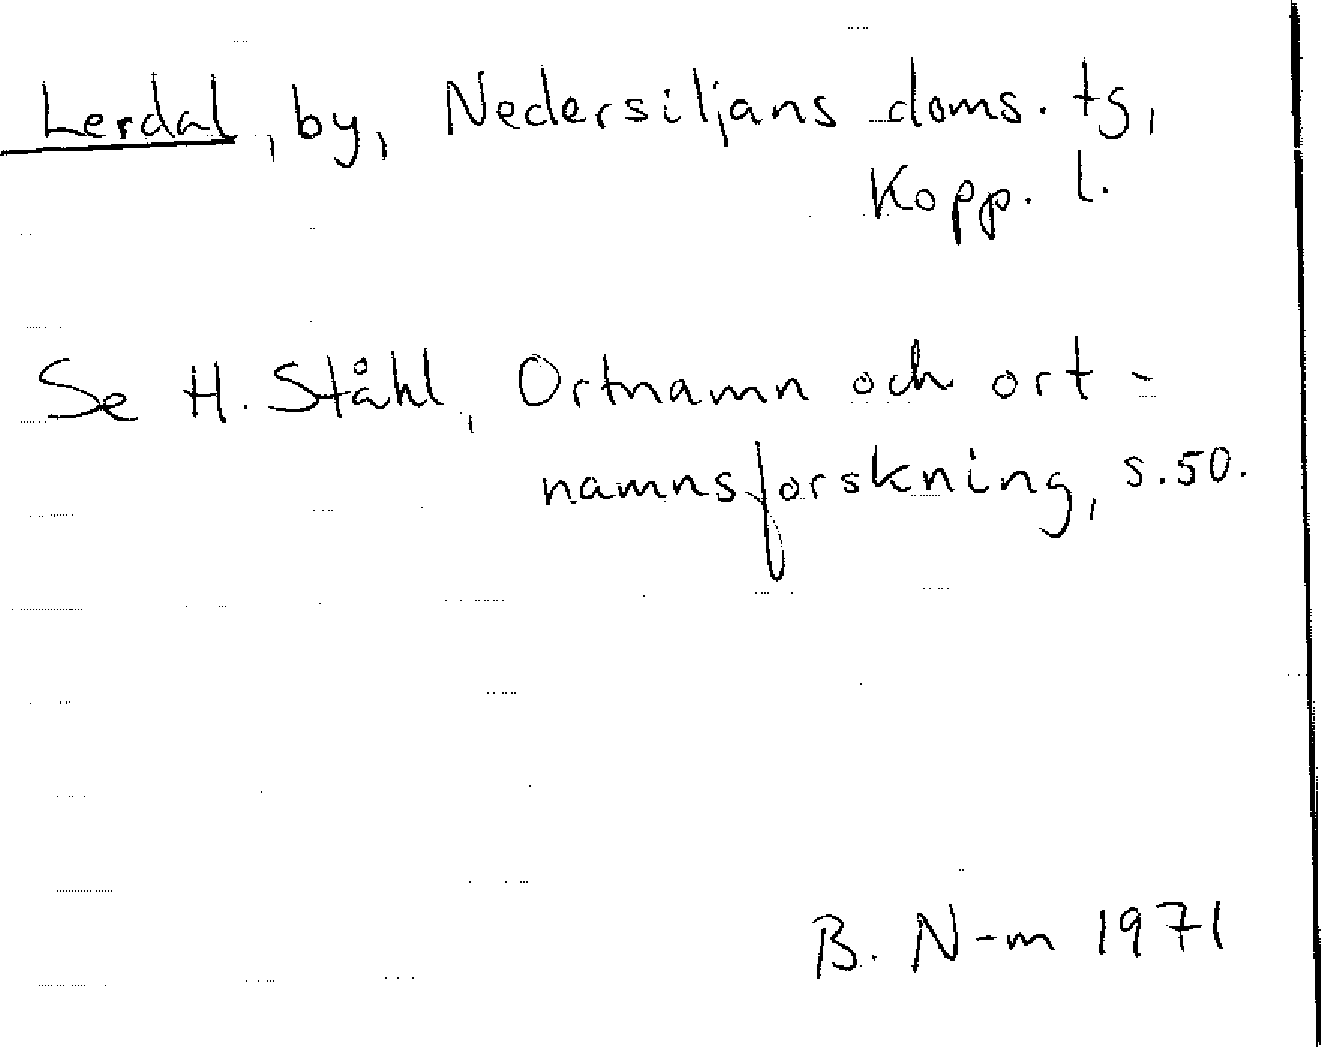 Lerdal, by, Nedersiljans doms. tg,
Kopp. l.
Se H. Ståhl, Ortnamn och ort-
namnsforskning, s.50.
B. N-m 1971